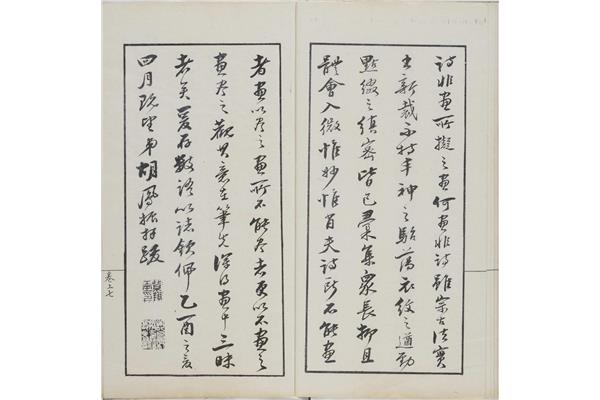 詩非畫所擬之畫何畫非詩雖崇古法實
出新裁不特丰神之駘蕩衣紋之遒勁
點綴之縝密皆已彙集眾長抑且
體會入微惟妙惟肖夫詩所不能畫
者畫以尽之畫所不能尽者更以不畫之
畫尽之觀其意在筆先深得畫中三昧
者矣爰存數語以誌欽佩乙酉之夏
四月既望弟胡鳳振拜跋
卷上七